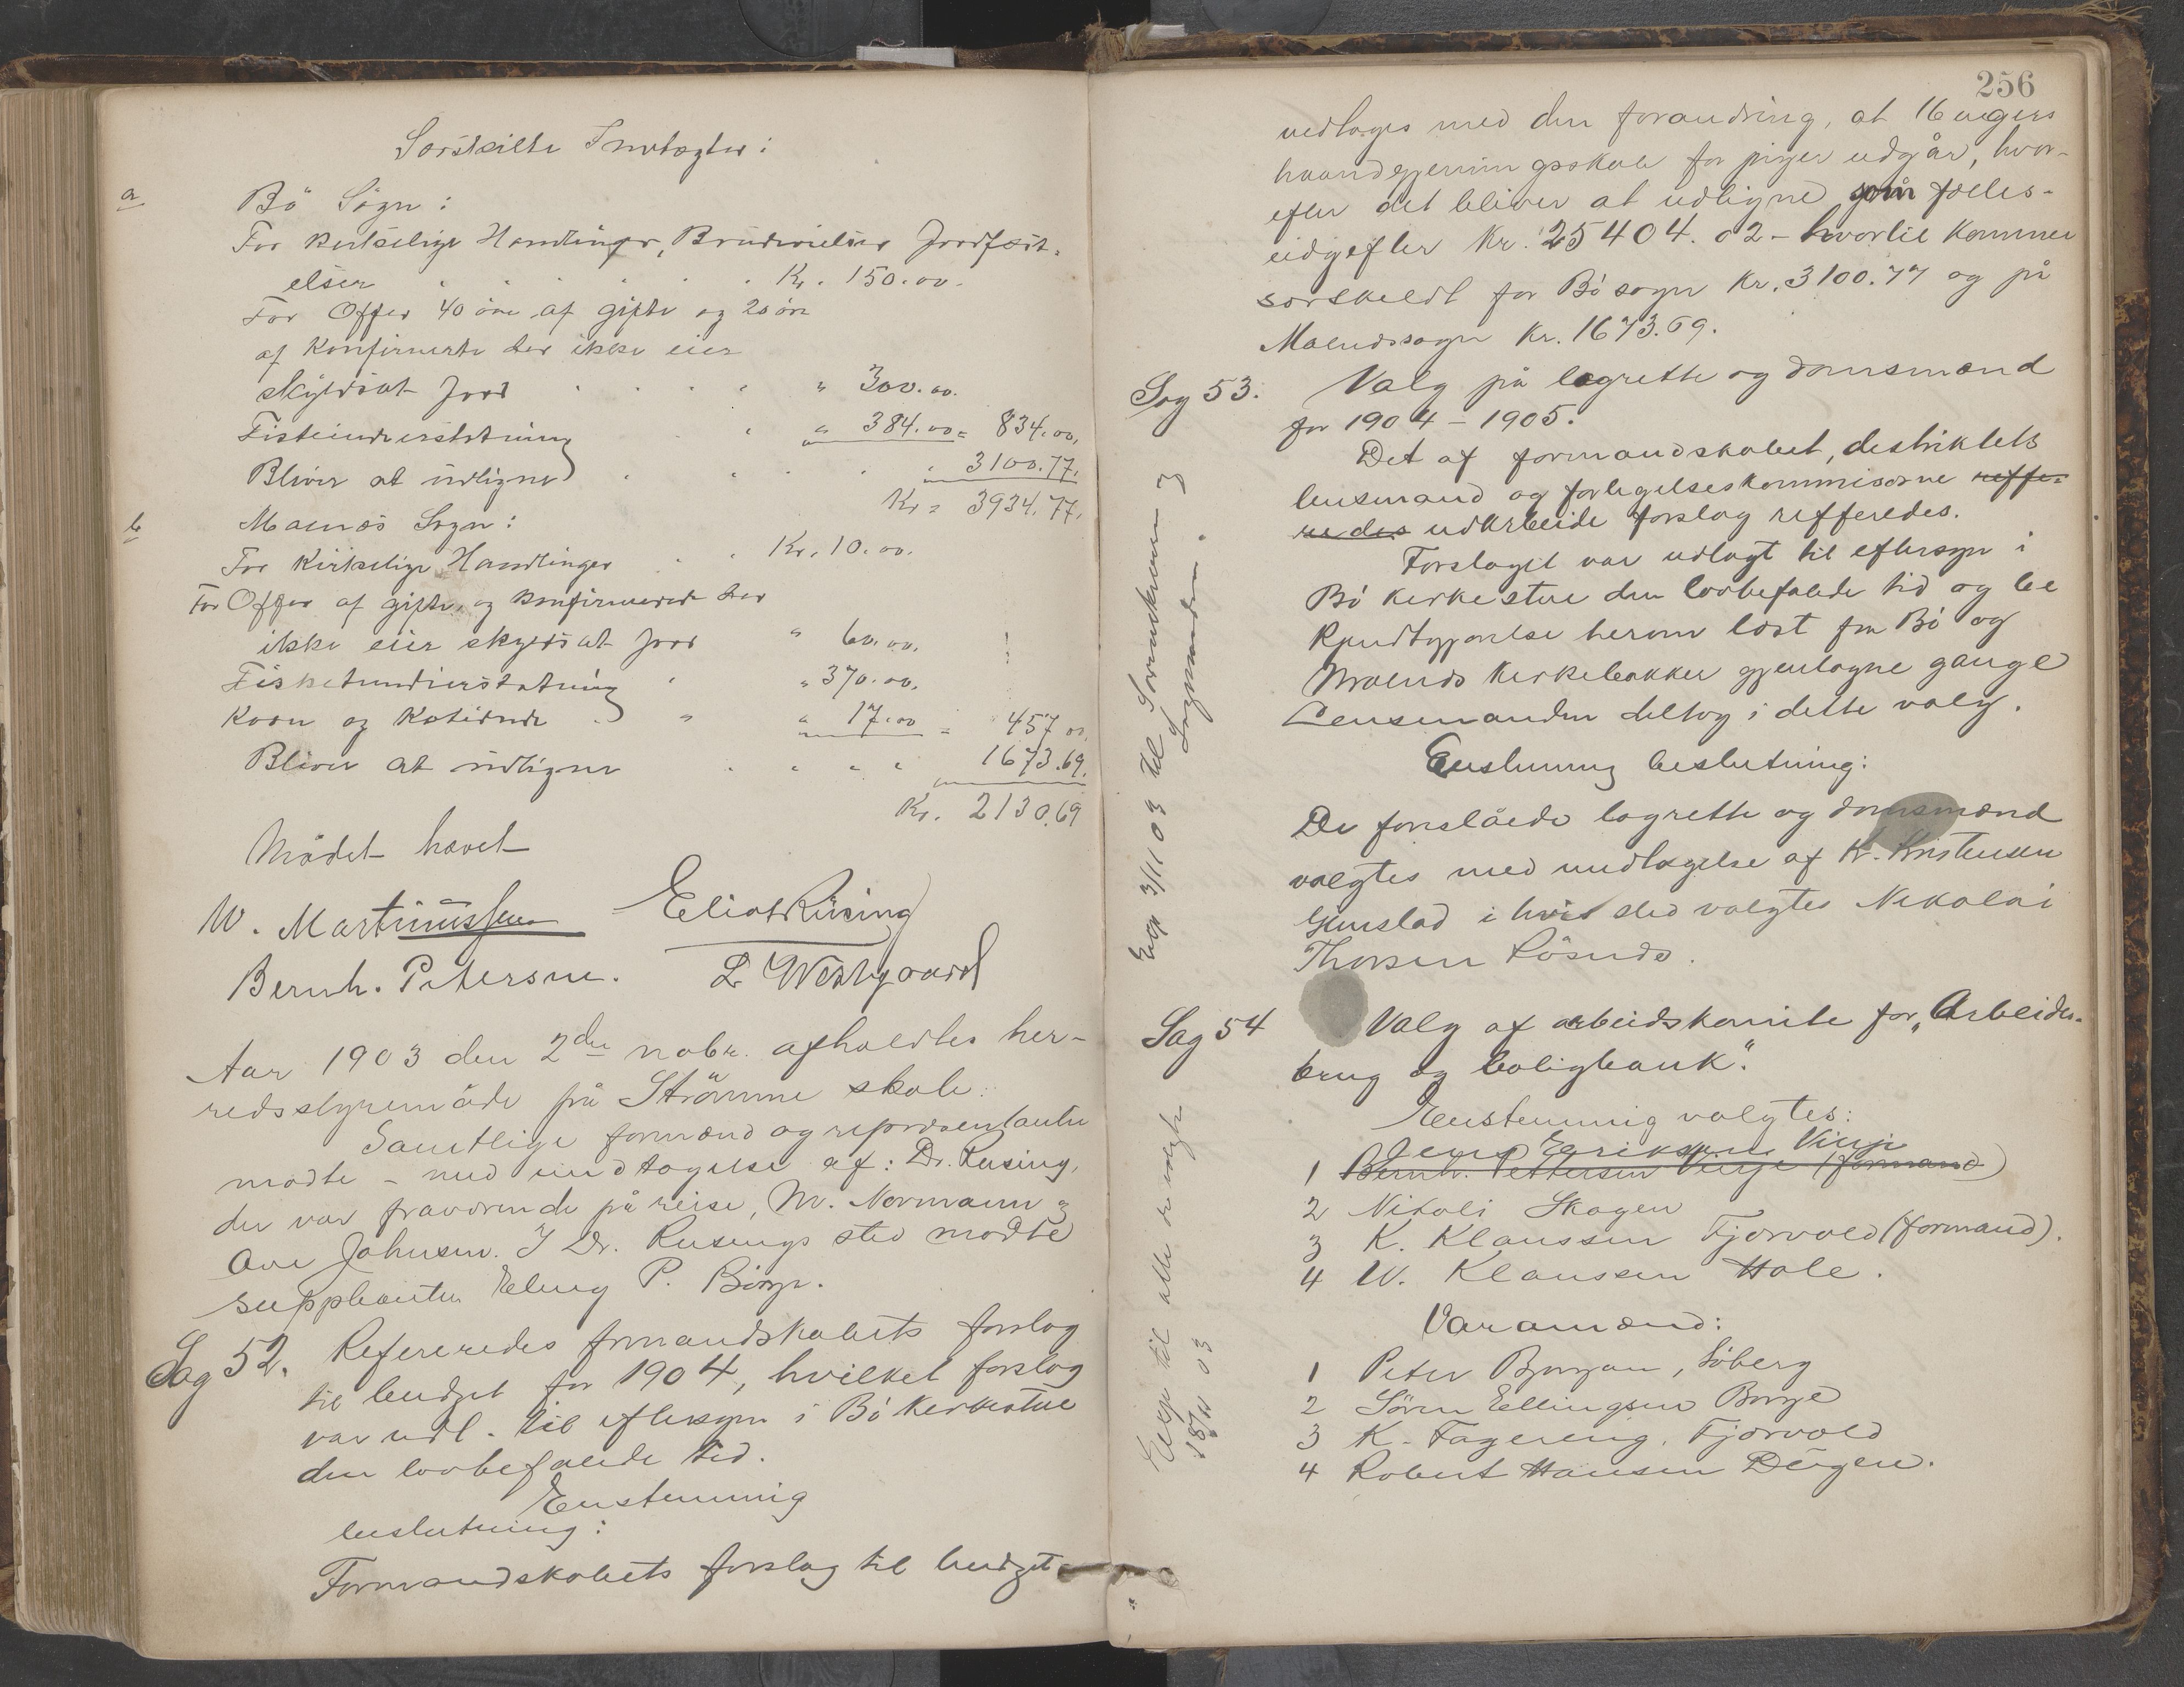 Særskilte Indtægter:
a Bö Sogn:
For kirkelige Handlinger, Brudevielser Jordfæst-
elser . . . . . . Kr. 150.00.
For Offer 40 öre af gifte og 20 öre
af Konfirmerte der ikke eier
skyldsat Jord . . . . " 300.00.
Fisketiendeerstatning . . " 384.00 = 834.00.
Bliver at udligne . . . . 3100.77.
Kr = 3934.77.
b Malnes Sogn:
For Kirkelige Handlinger . . Kr. 10.00.
For Offer af gifte og konfirmerede der
ikke eier skyldsat Jord " 60.00.
Fisketiendeerstatning " 370.00.
Korn og Kotiende . " " 17.00 = 457 00.
Bliver at udligne . . . . 1673.69.
Kr. 2130.69
Mödet hævet
W. Martinussen Eliot Rüsing
Bernh. Petersen. L Westgaard
Aar 1903 den 2den nobr. afholdtes her-
redsstyremöde på Strömme skole.
Samtlige formænd og repræsentanter
mödte – med undtagelse af: Dr. Rusing,
der var fraværende på reise, M. Normann og
Ove Johnsen. I Dr. Rusings sted mödte
suppleanten Elling P. Börge.
Sag 52. Refereredes formandskabets forslag
til budget for 1904, hvilket forslag
var udl. til eftersyn i Bö kirkestue
den lovbefalede tid.
Enstemmig
beslutning:
Formandskabets forslag til budget
256
vedtages med den forandring, at 16 ugers
haandgjerningsskole for piger udgår, hvor-
efter det bliver at udligne som fælles-
udgifter Kr. 25404.02 – hvortil kommer
særskildt for Bö sogn Kr. 3100.77 og på
Malnes sogn Kr. 1673.69.
Sag 53. Valg på lagrette og domsmænd
for 1904 – 1905.
Det af formandskabet, distriktets
lensmand og forligelseskommisærne reffe-
redes udarbeide forslag refferedes.
Forslaget var udlagt til eftersyn i
Bö kirkestue den lovbefalede tid og be
kjendtgjørelse herom læst fra Bö og
Malnes kirkebakker gjentagne gange
Lensmanden deltog i dette valg.
Enstemmig beslutning:
De foreslåede lagrette og domsmænd
valgtes med undtagelse af K. Kristensen
Gunstad i hvis sted valgtes Nikolai
Thorsen
Exp 3/11 03 til Sorenskriven og
Lagmanden.
Sag 54 Valg af arbeidskomite for „Arbeider-
brug og boligbank".
Enstemmig valgtes:
Jens Eriksen Vinje
1 Bernh. Pettersen Vinje (formand)
2 Nikoli Skagen
3 K. Klaussen Fjærvold (formand).
4 W. Klaussen Hole.
Varamænd:
1 Peter Bergan, Söberg
2 Sören Ellingsen Borge
3 K. Fagereng, Fjærvold
4 Robert Hansen Dögen.
Exp til alle de valgte
18/11 03